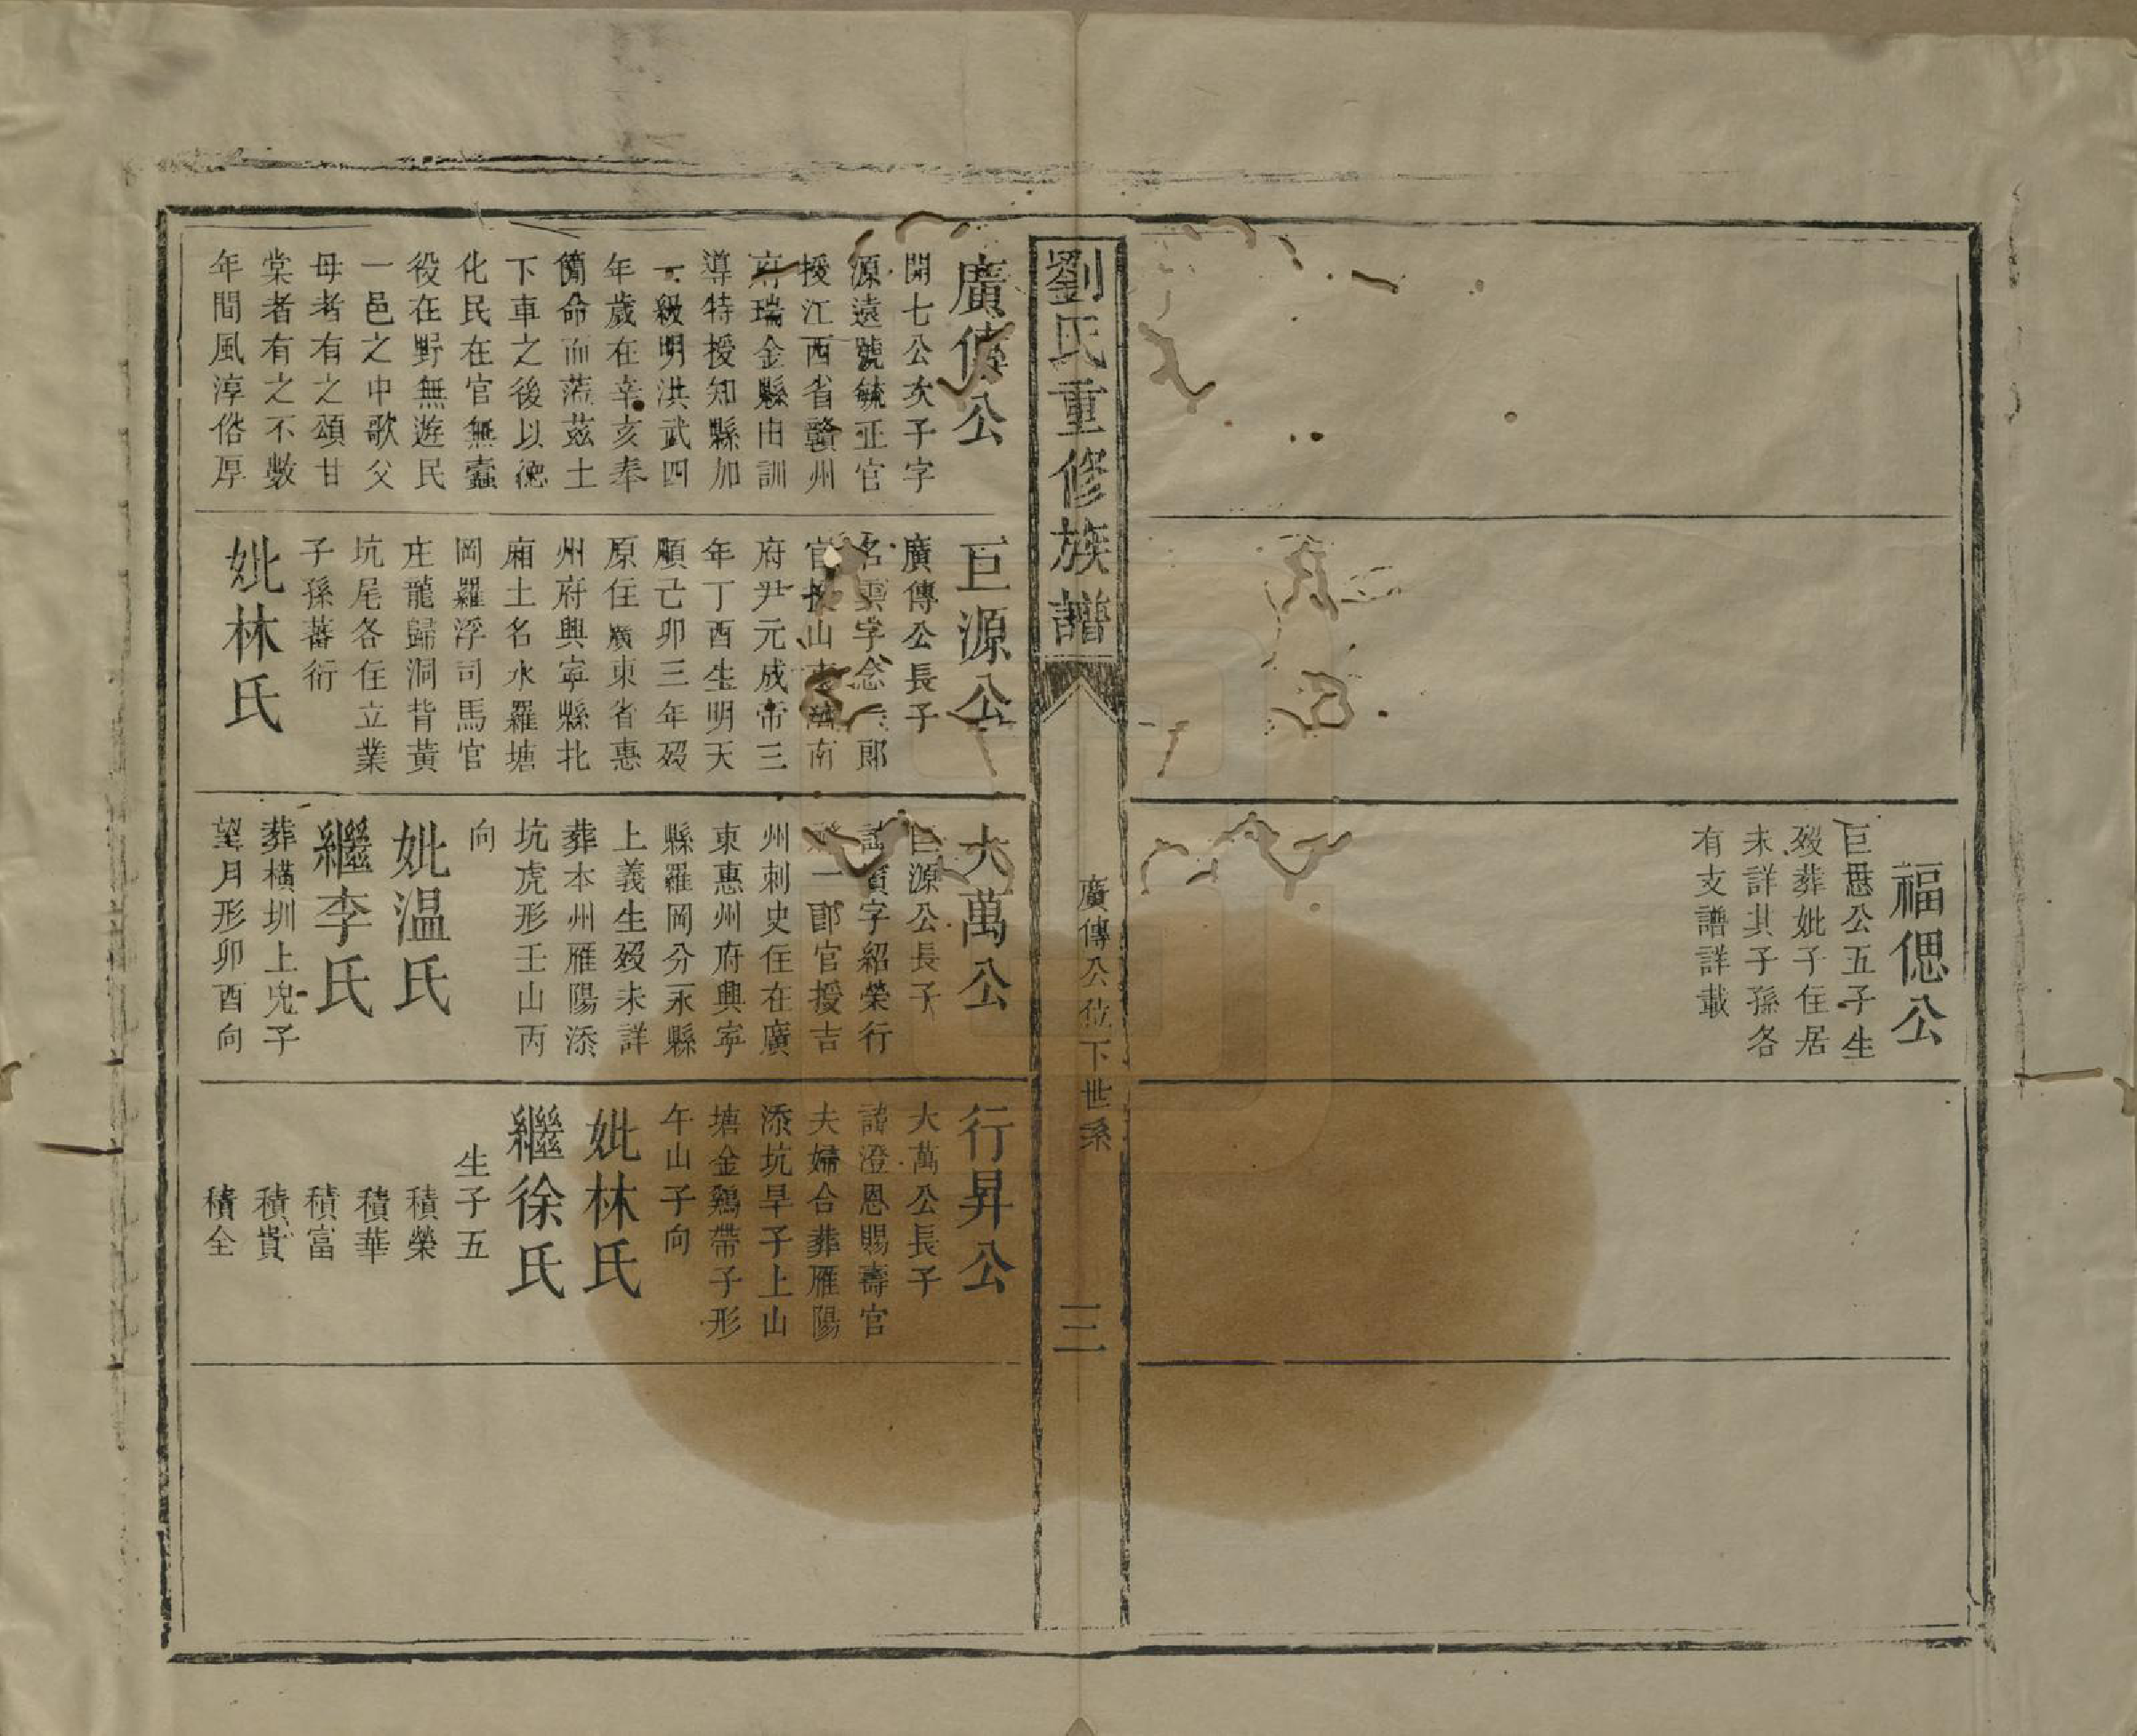 福偲公
巨愳公五子生
殁葬妣子住居
未詳其子孫各
有支譜詳載
劉氏重修族譜
廣傳公位下世系
三
廣傳公
開七公次子字
源遠號毓正官
授江西省贛州
府瑞金縣由訓
導特授知縣加
一級明洪武四
年歲在辛亥奉
簡命而蒞茲土
下車之後以德
化民在官無蠹
役在野無遊民
一邑之中歌父
母者有之頌甘
棠者有之不數
年間風淳俗厚
巨源公
廣傳公長子
名雲字念郎
官授山東濟南
府尹元成帝三
年丁酉生明天
順己卯三年殁
原住廣東省惠
州府興寧縣北
廂土名水羅塘
岡羅浮司馬官
庄龍歸洞背黃
坑尾各住立業
子孫蕃衍
妣林氏
大萬公
巨源公長子
諱廣字紹榮行
一郎官授吉
州刺史住在廣
東惠州府興寧
縣羅岡分永縣
上義生殁未詳
葬本州雁陽添
坑虎形壬山丙
向
妣温氏
繼李氏
葬橫圳上兜子
望月形卯酉向
行昇公
大萬公長子
諱澄恩賜壽官
夫婦合葬雁陽
添坑旱子上山
塘金鷄帶子形
午山子向
妣林氏
繼徐氏
生子五
積榮
積華
積富
積貴
積全